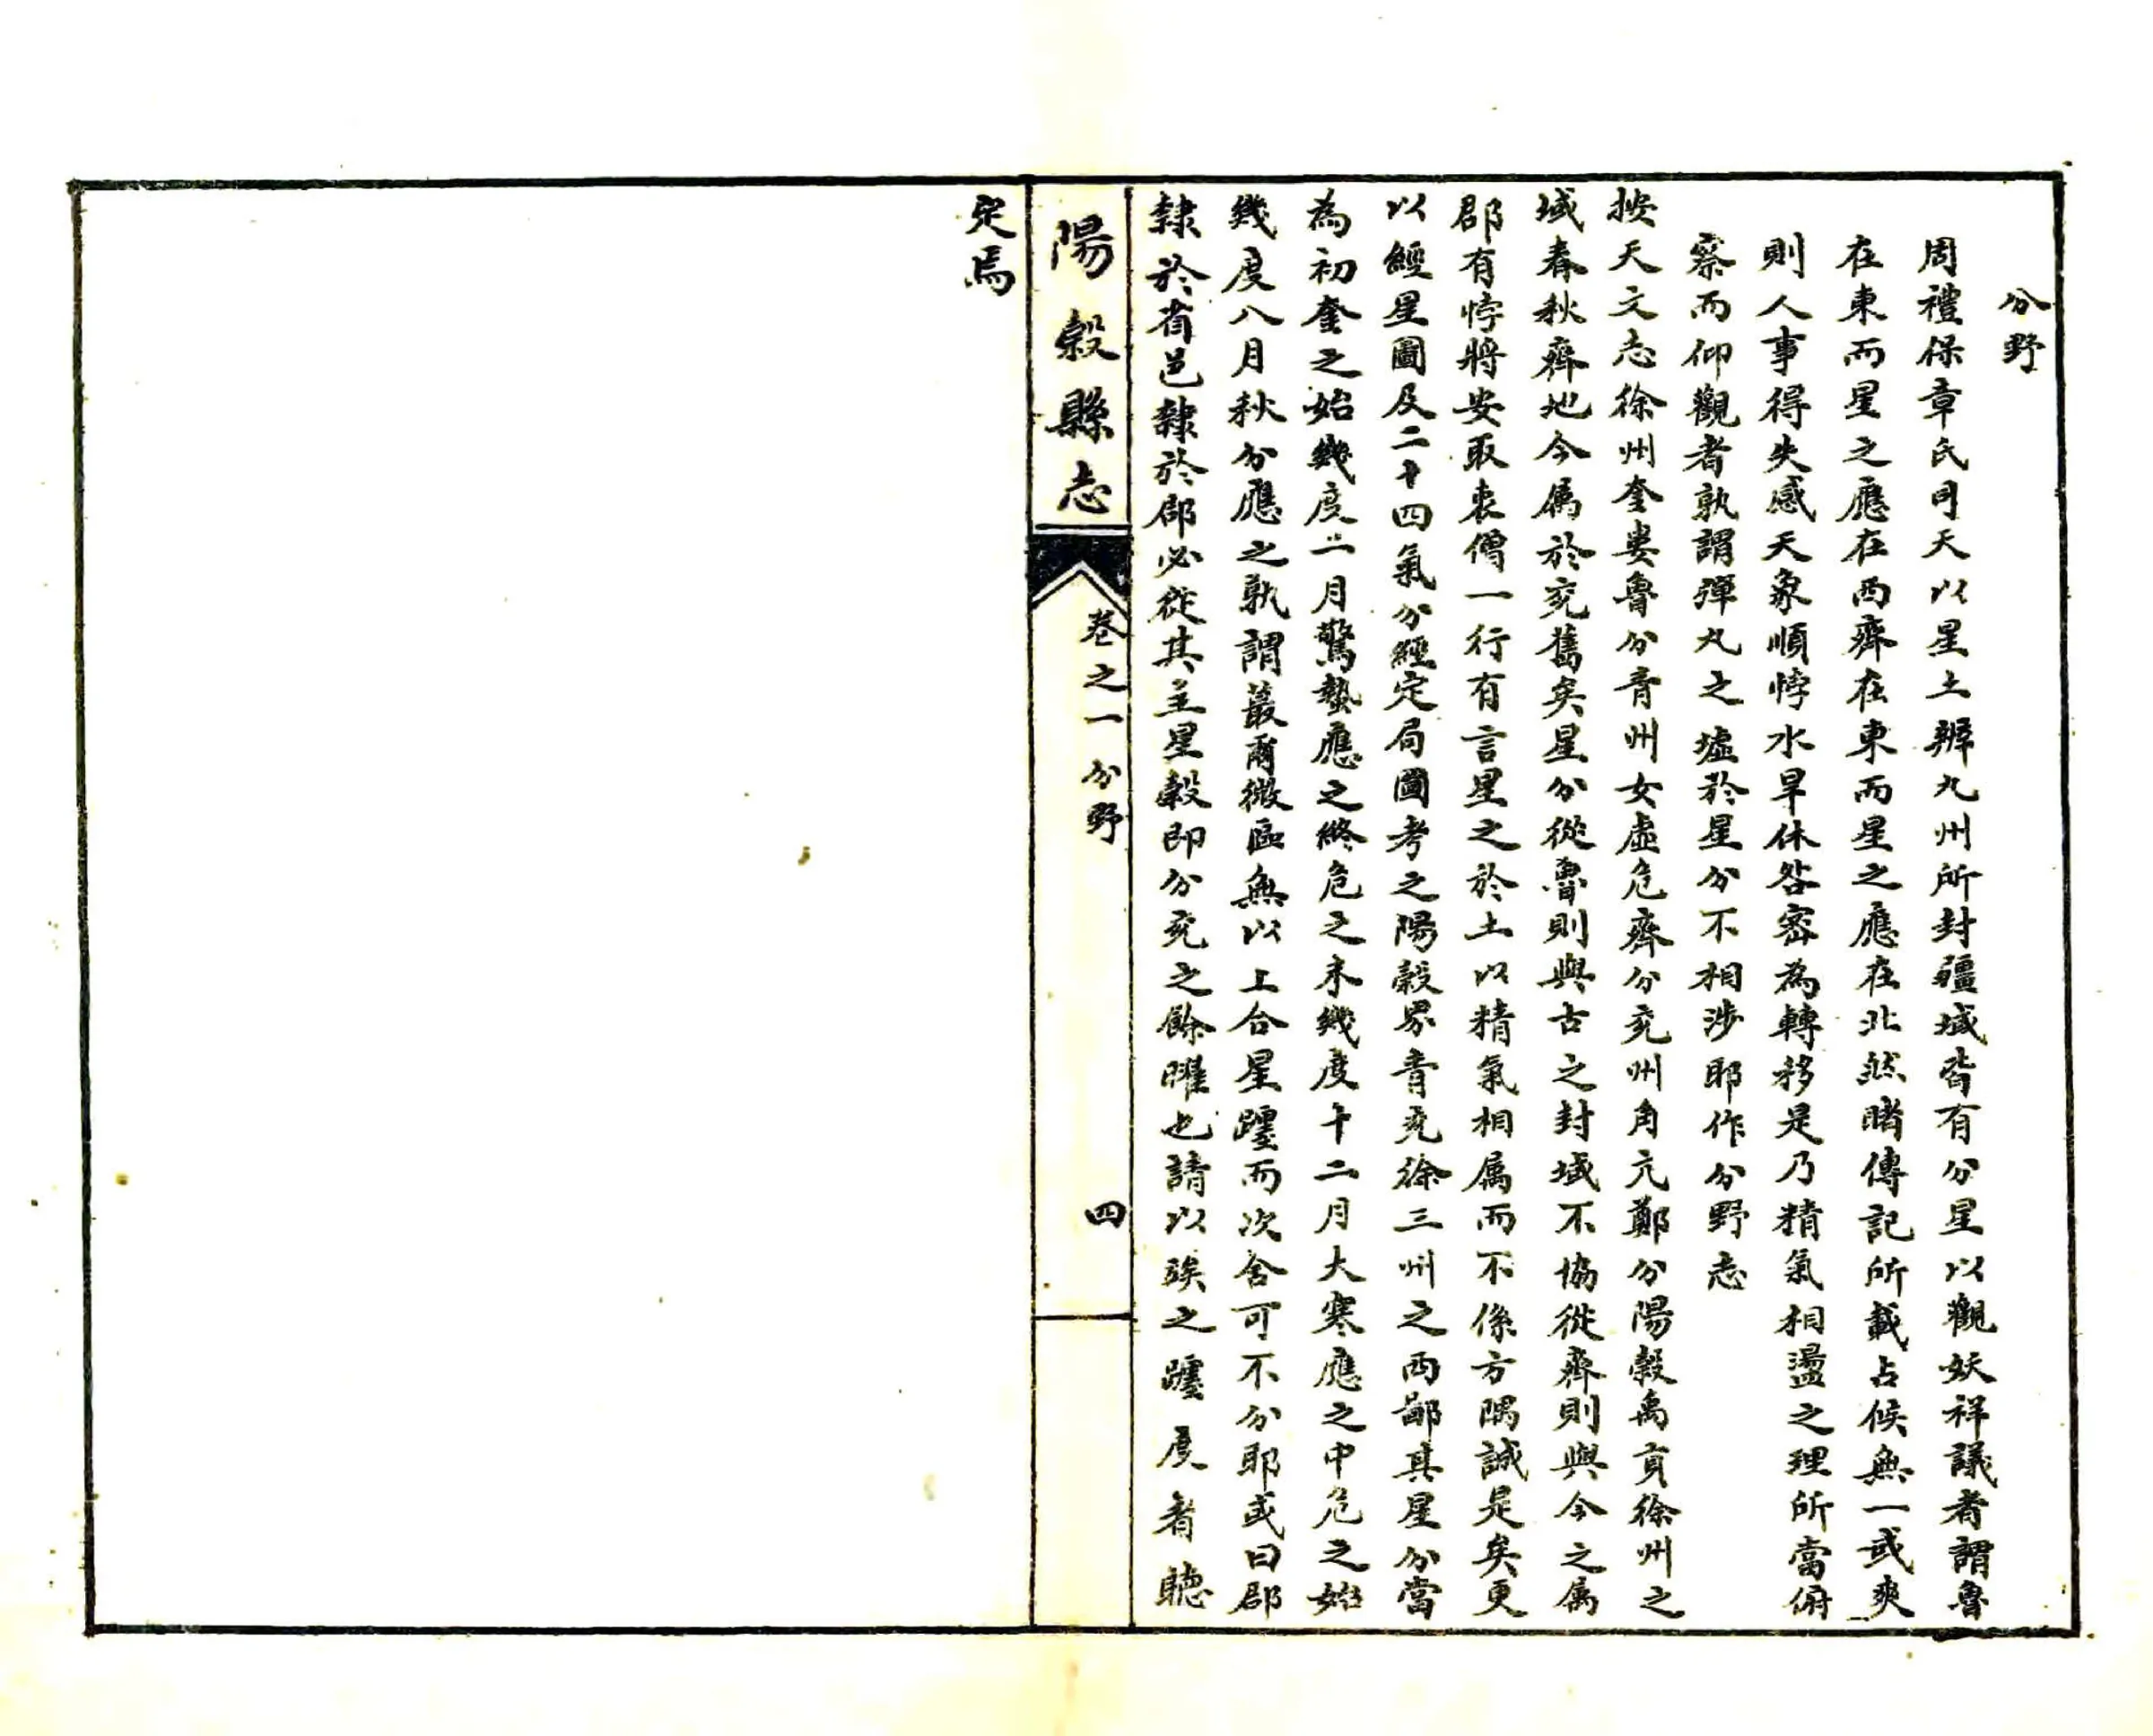 分野
周禮保章氏司天以星土辨九州所封疆域皆有分星以觀妖祥議者謂魯
在東而星之應在西齊在東而星之應在北然睹傳記所載占候無一或爽
則人事得失感天象順悖水旱休咎密為轉移是乃精氣相盪之理所當俯
察而仰觀者孰謂彈丸之墟於星分不相涉耶作分野志
按天文志徐州奎婁魯分青州女虛危齊分兖州角亢鄭分陽穀禹貢徐州之
域春秋齊地今属於兖舊矣星分從魯則與古之封域不協從齊則與今之属
郡有悖將安取衷僧一行有言星之於土以精氣相属而不係方隅誠是矣更
以經星圖及二十四氣分經定局圖考之陽穀界青兖徐三州之西鄙其星分當
為初奎之始幾度二月驚蟄應之終危之末幾度十二月大寒應之中危之始
幾度八月秋分應之孰謂蕞爾微區無以上合星躔而次舍可不分耶或曰郡
隸於省邑隸於郡必從其主星穀即分兖之餘曜也請以竢之躔度者聽
陽穀縣志
卷之一 分野
四
定焉